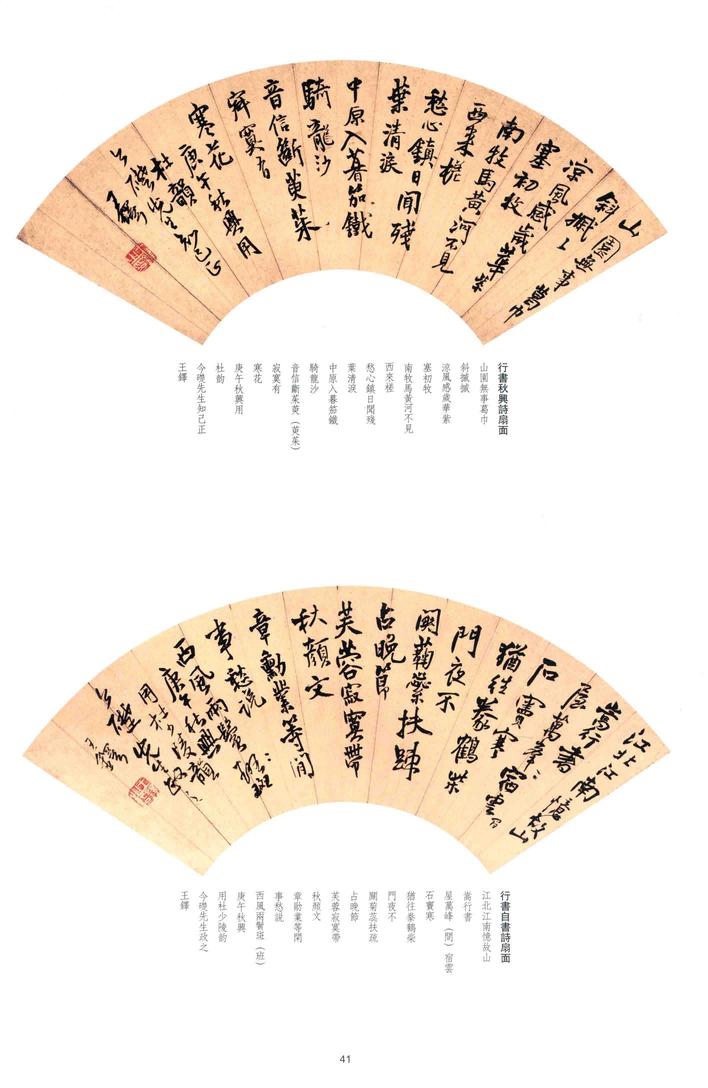 山園無事葛巾
斜摵〻
涼風感歲華紫
塞初牧
南牧馬黃河不見
西來槎
愁心鎮日聞殘
葉清淚
中原入暮笳鐵
騎龍沙
音信斷萸茱
寂寞有
寒花
庚午秋興用
杜韻
今礎先生知己正
王鐸
行書秋興詩扇面
山園無事葛巾
斜摵摵
涼風感歲華紫
塞初牧
南牧馬黃河不見
西來槎
愁心鎮日聞殘
葉清淚
中原入暮笳鐵
騎龍沙
音信斷茱萸（萸茱）
寂寞有
寒花
庚午秋興用
杜韵
今礎先生知己正
王鐸
江北江南憶故山
嵩行書
屋萬峯〻宿雲間
石竇寒
猶往豢鶴柴
門夜不
關菊蕊扶疏
占晚節
芙蓉寂寞帶
秋顏文
章勳業等閒
事愁說
西風兩鬢班
庚午秋興
用杜少陵韻
今礎先生政之
王鐸
行書自書詩扇面
江北江南憶故山
嵩行書
屋萬峰（間）宿雲
石竇寒
猶往豢鶴柴
門夜不
關菊蕊扶疏
占晚節
芙蓉寂寞帶
秋顏文
章勛業等閑
事愁說
西風兩鬢斑（班）
庚午秋興
用杜少陵韵
今礎先生政之
王鐸
41